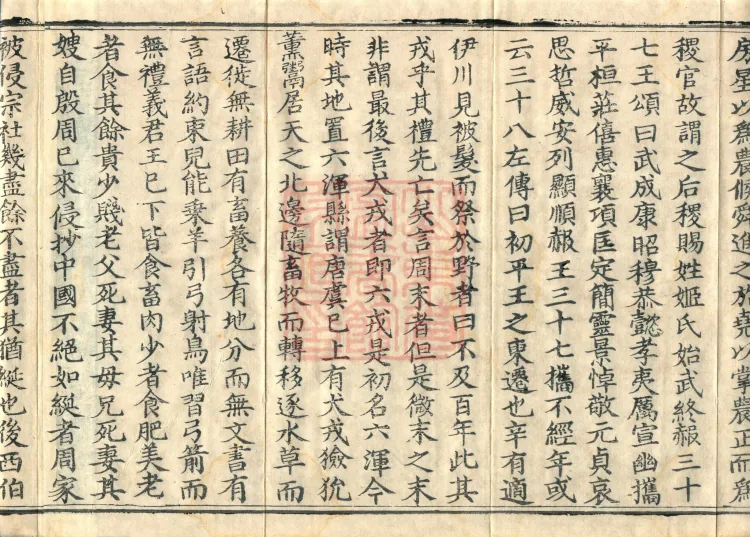 房星以為農假舜進之於堯以掌農正而為
稷官故謂之后稷賜姓姬氏始武終赧三十
七王頌曰武成康昭穆恭懿孝夷厲宣幽攜
平桓莊僖惠襄項匡定簡靈景悼敬元貞哀
思哲威安列顯順赧王三十七攜不經年或
云三十八左傳曰初平王之東遷也辛有適
伊川見被髮而祭於野者曰不及百年此其
戎乎其禮先亡矣言周末者但是微末之末
非謂最後言犬戎者即六戎是初名六渾今
時其地置六渾縣謂唐虞已上有犬戎獫狁
薰鬻居天之北邊隨畜牧而轉移逐水草而
遷徙無耕田有畜養各有地分而無文書有
言語約束兒能乗羊引弓射鳥唯習弓箭而
無禮義君王已下皆食畜肉少者食肥美老
者食其餘貴少賤老父死妻其母兄死妻其
嫂自殷周已來侵抄中國不絕如綖者周家
被侵宗社幾盡餘不盡者其猶綖也後西伯